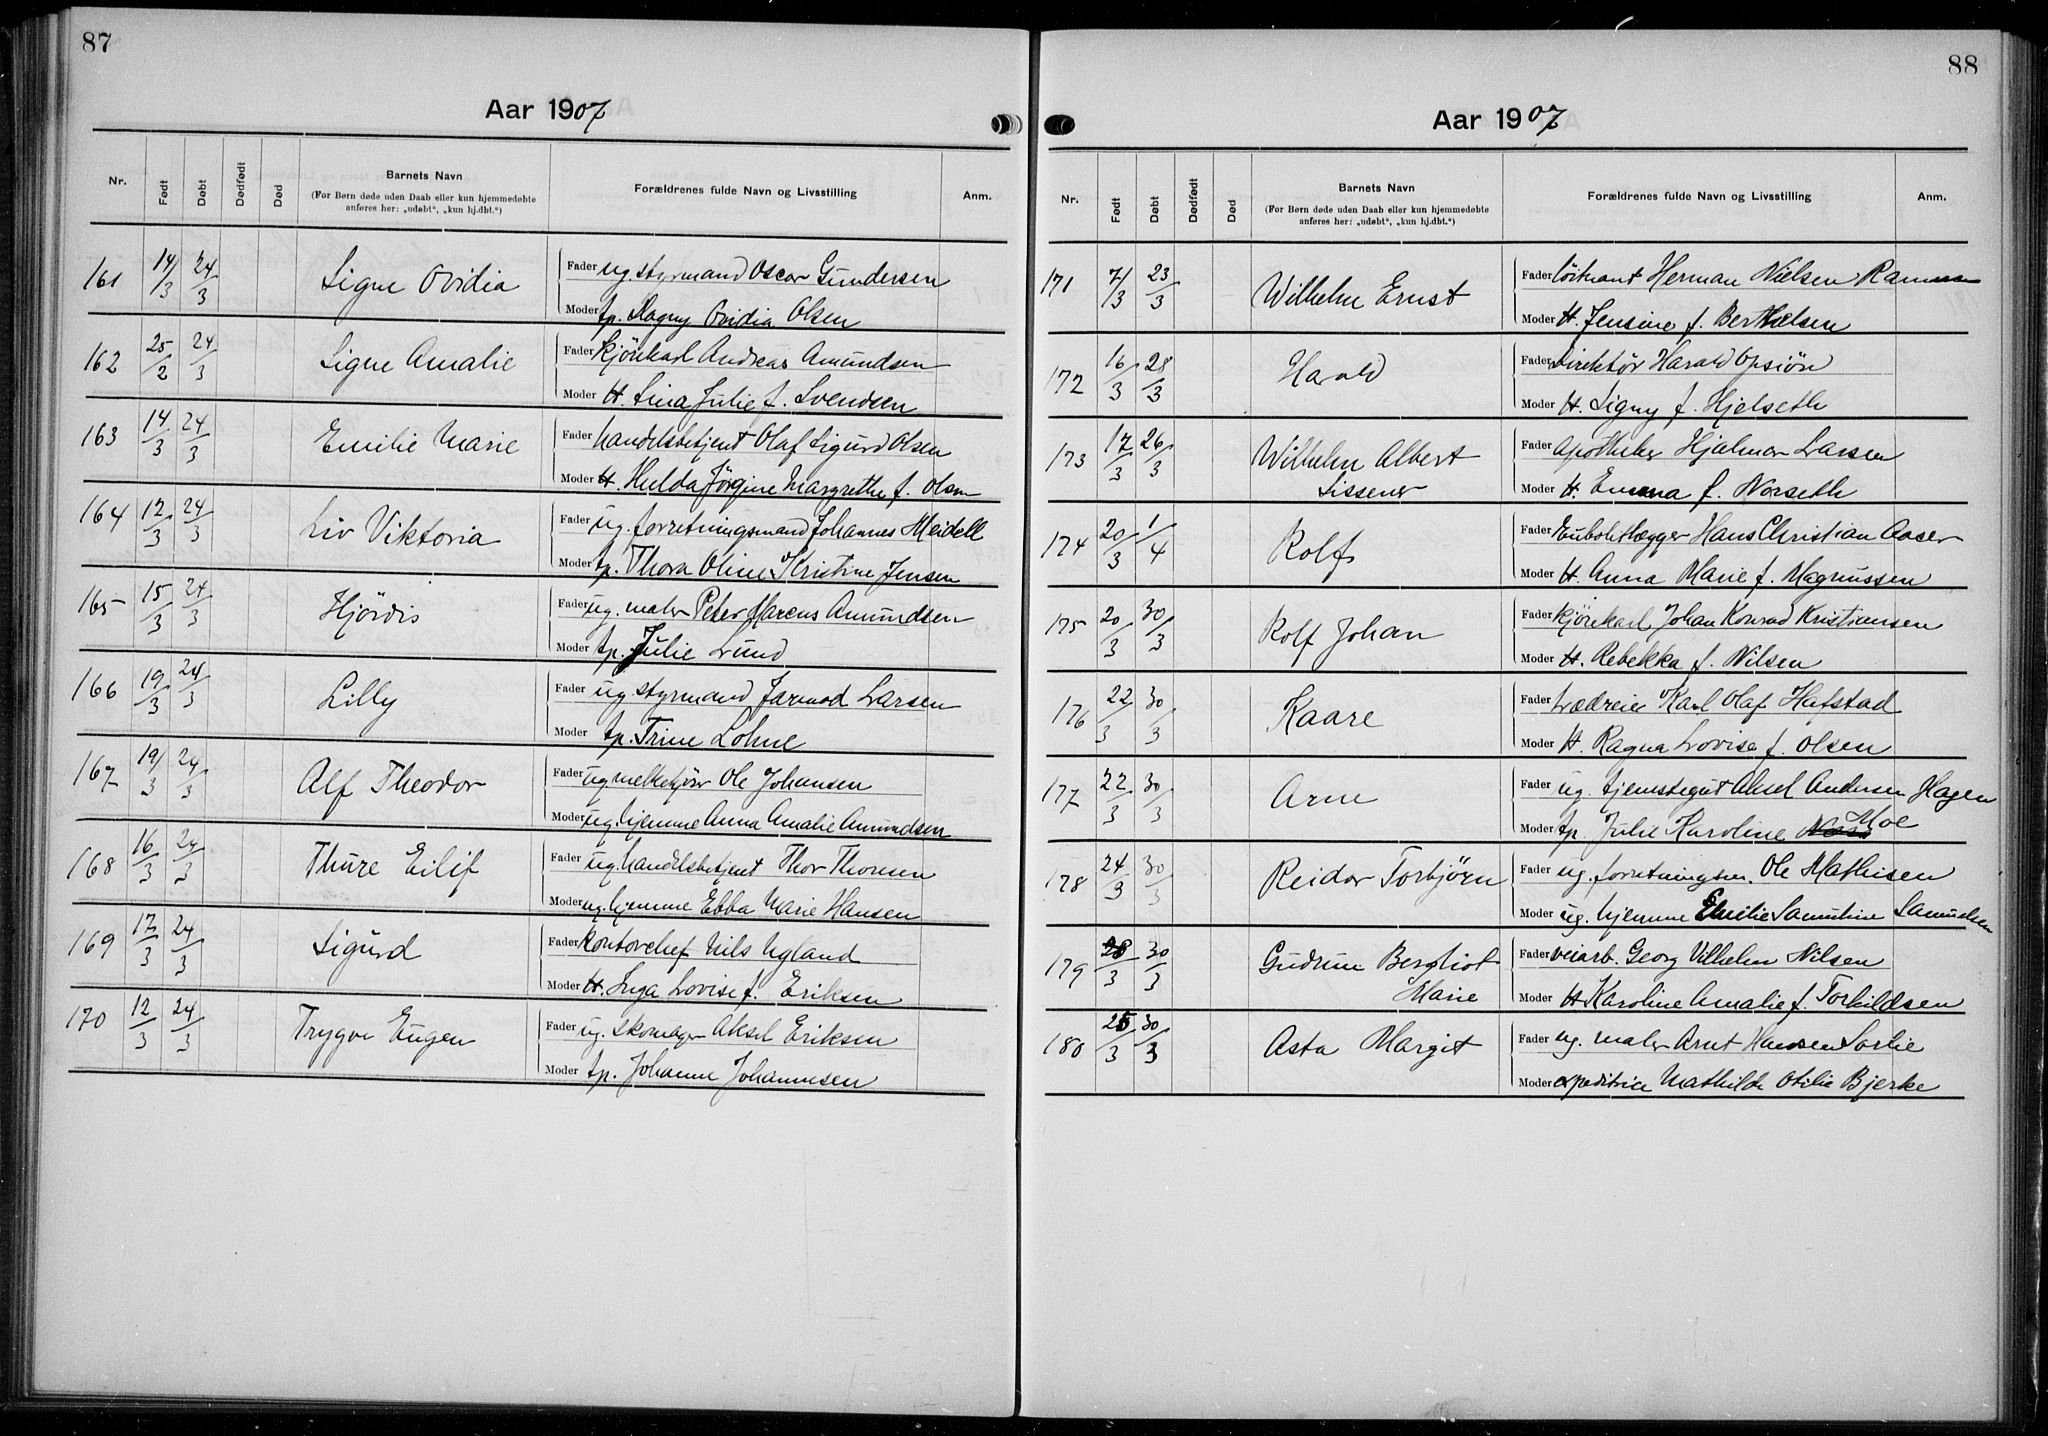 87
Aar 1907
Nr.
Født
Døbt
Dødfødt
Død
Barnets Navn
(For Børn døde uden Daab eller kun hjemmedøbte
anføres her: „udøbt“, „kun hj.dbt.“)
Forældrenes fulde Navn og Livsstilling
Anm.
161 14/3 24/3 Signe Ovidia Fader ug. styrmand Oscar Gundersen
Moder tp. Dagny Ovidia Olsen
162 25/2 24/3 Signe Amalie Fader kjørekarl Andreas Amundsen
Moder H. Lina Julie f. Svendsen
163 14/3 24/3 Emilie Marie Fader handelsbetjent Olaf Sigurd Olsen
Moder H. Hulda Jørgine Margrethe f. Olsen
164 12/3 24/3 Liv Viktoria Fader ug. forretningsmand Johannes Meidell
Moder tp. Thora Oline Kristine Jensen
165 15/3 24/3 Hjördis Fader ug. maler Peter Marcus Amundsen
Moder tp. Julie Lund
166 19/3 24/3 Lilly Fader ug styrmand Jarmod Larsen
Moder tp. Trine Lohne
167 19/3 24/3 Alf Theodor Fader ug melkekjører Ole Johansen
Moder ug. hjemme Anna Amalie Amundsen
168 16/3 24/3 Thure Eilif Fader ug handelsbetjent Thor Thorsen
Moder ug. hjemme Ebba Marie Hansen
169 17/3 24/3 Sigurd Fader kontorchef Nils Ugland
Moder H. Inga Lovise f. Eriksen
170 12/3 24/3 Trygve Eugen Fader ug. skomager Aksel Eriksen
Moder tp. Johanne Johannesen
88
Aar 1907
Nr.
Født
Døbt
Dødfødt
Død
Barnets Navn
(For Børn døde uden Daab eller kun hjemmedøbte
anføres her: „udøbt“, „kun hj.dbt.“)
Forældrenes fulde Navn og Livsstilling
Anm.
171 7/3 23/3 Wilhelm Ernst Fader löitnant Herman Nielsen
Moder H. Jensine f. Berthelsen
172 16/3 28/3 Harald Fader Direktør Harald Opsiön
Moder H. Signy f. Hjelseth
173 17/3 26/3 Wilhelm Albert Fader Apotheker Hjalmar Larsen
Lissener Moder H. Emma f. Norseth
174 20/3 1/4 Rolf Fader Hans Christian Aaser
Moder H. Anna Marie f. Magnussen
175 20/3 30/3 Rolf Johan Fader kjörekarl Johan Konrad Kristiansen
Moder H. Rebekka f. Nilsen
176 22/3 30/3 Kaare Fader trædreier Karl Olaf Hafstad
Moder H. Ragna Lovise f. Olsen
177 22/3 30/3 Arne Fader ug. tjenstegut Aksel Andersen Hagen
Moder tp. Julie Karoline Moe
178 24/3 30/3 Reidar Torbjörn Fader ug. forretningsm. Ole Mathisen
Moder ug. hjemme Emilie Samueline Samuelsen
179 28/3 30/3 Gudrun Bergliot Fader veiarb. Georg Vilhelm Nilsen
Marie Moder H Karoline Amalie f. Torkildsen
180 25/3 30/3 Asta Margit Fader ug. maler Arnt Hansen Sørlie
Moder expeditrice Mathilde Otilie Bjerke